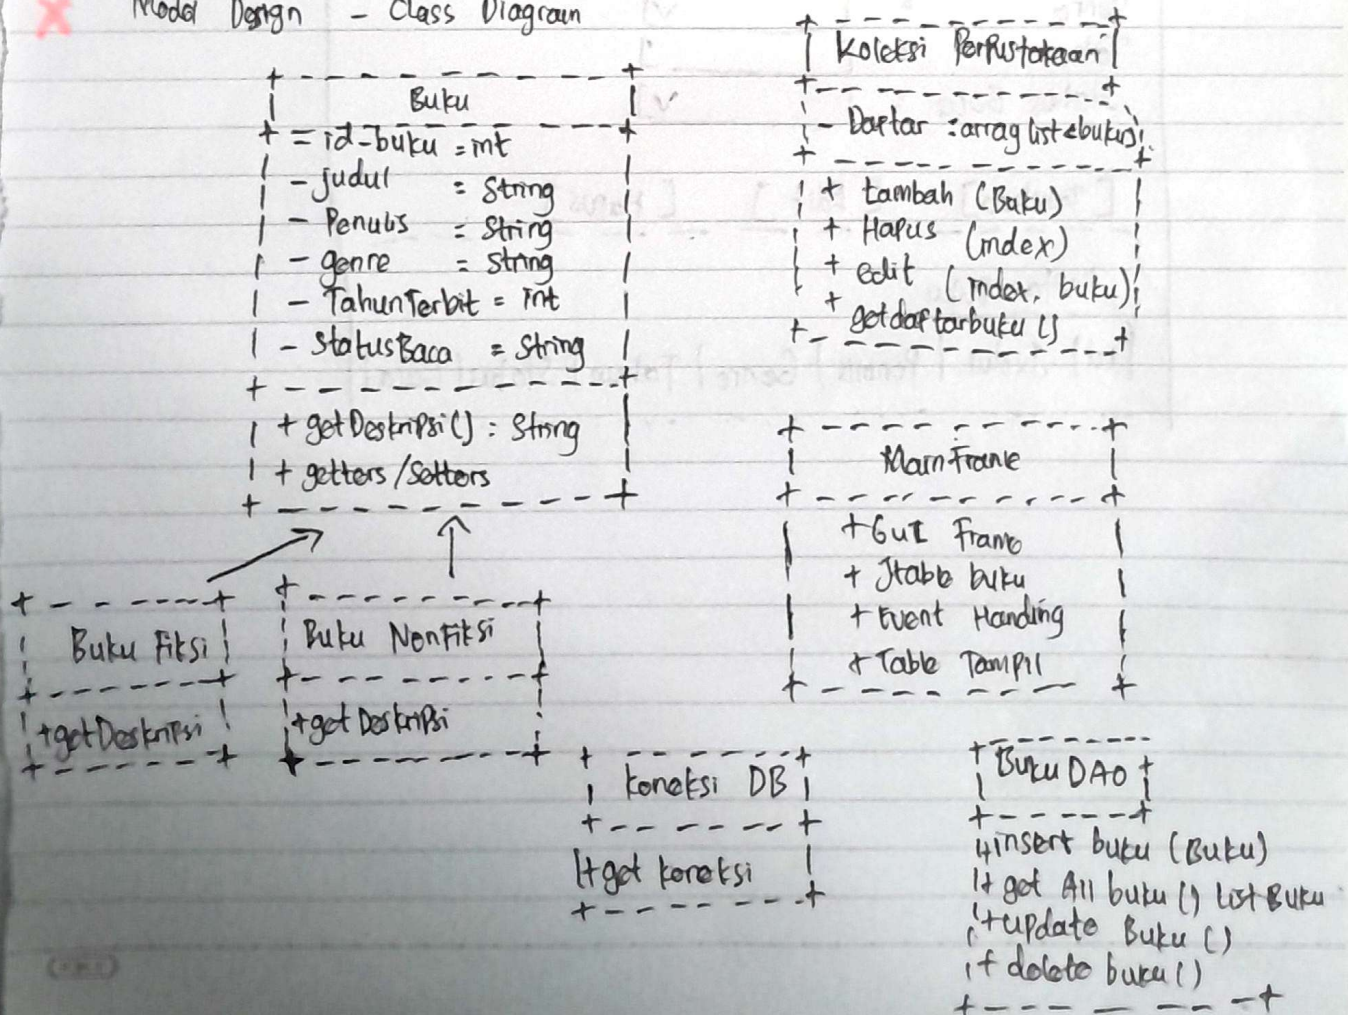 Model Design - Class Diagram
Buku
= id-buku = int
- judul = String
- Penulis = String
- genre = String
- TahunTerbit = int
- StatusBaca = String
+ getDeskripsi() : String
+ getters/Setters
Buku Fiksi
+getDeskripsi
Buku NonFiksi
+getDeskripsi
Koleksi Perpustakaan
- Daftar : arraylist<buku>
+ tambah (Buku)
+ Hapus (index)
+ edit (index, buku)
+ getdaftarbuku ()
MainFrame
+GUI Frame
+ Jtable buku
+ Event Handing
+ Table Tampil
Koneksi DB
+get koneksi
Buku DAO
+insert buku (Buku)
+ get All buku () List Buku
+update Buku ()
+ delete buku ()